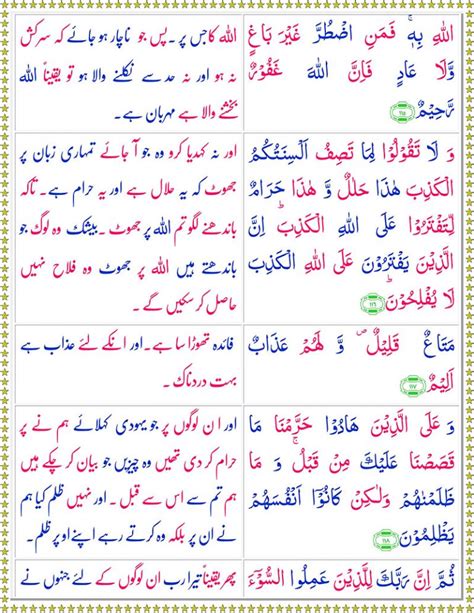 اللهِ بِهٖ ۚ فَمَنِ اضْطُرَّ غَيْرَ بَاغٍ
وَّلَا عَادٍ فَاِنَّ اللهَ غَفُوْرٌ
رَّحِيْمٌ ۝۱۱۵
اللہ کا جس پر۔ پس جو ناچار ہو جائے کہ سرکش
نہ ہو اور نہ حد سے نکلنے والا ہو تو یقیناً اللہ
بخشنے والا ہے مہربان ہے۔
وَ لَا تَقُوْلُوْا لِمَا تَصِفُ اَلْسِنَتُكُمُ
الْكَذِبَ هٰذَا حَلٰلٌ وَّ هٰذَا حَرَامٌ
لِّتَفْتَرُوْا عَلَى اللهِ الْكَذِبَ ؕ اِنَّ
الَّذِيْنَ يَفْتَرُوْنَ عَلَى اللهِ الْكَذِبَ
لَا يُفْلِحُوْنَ ؕ ۝۱۱۶
اور نہ کہدیا کرو وہ جو آ جائے تمہاری زبان پر
جھوٹ کہ یہ حلال ہے اور یہ حرام ہے۔ تاکہ
باندھنے لگو تم اللہ پر جھوٹ۔ بیشک وہ لوگ جو
باندھتے ہیں اللہ پر جھوٹ وہ فلاح نہیں
حاصل کر سکیں گے۔
مَتَاعٌ قَلِيْلٌ ۪ وَّ لَهُمْ عَذَابٌ
اَلِيْمٌ ۝۱۱۷
فائدہ تھوڑا سا ہے۔ اور انکے لئے عذاب ہے
بہت دردناک۔
وَ عَلَى الَّذِيْنَ هَادُوْا حَرَّمْنَا مَا
قَصَصْنَا عَلَيْكَ مِنْ قَبْلُ ۚ وَ مَا
ظَلَمْنٰهُمْ وَلٰكِنْ كَانُوْۤا اَنْفُسَهُمْ
يَظْلِمُوْنَ ۝۱۱۸
اور ا ن لوگوں پر جو یہودی کہلائے ہم نے پر
حرام کر دی تھیں وہ چیزیں جو بیان کر چکے ہیں
ہم تم سے اس سے قبل۔ اور نہیں ظلم کیا ہم
نے ان پر بلکہ وہ کرتے رہے اپنے او پر ظلم۔
ثُمَّ اِنَّ رَبَّكَ لِلَّذِيْنَ عَمِلُوا السُّوْٓءَ
پھر یقیناً تیرا رب ان لوگوں کے لئے جنہوں نے